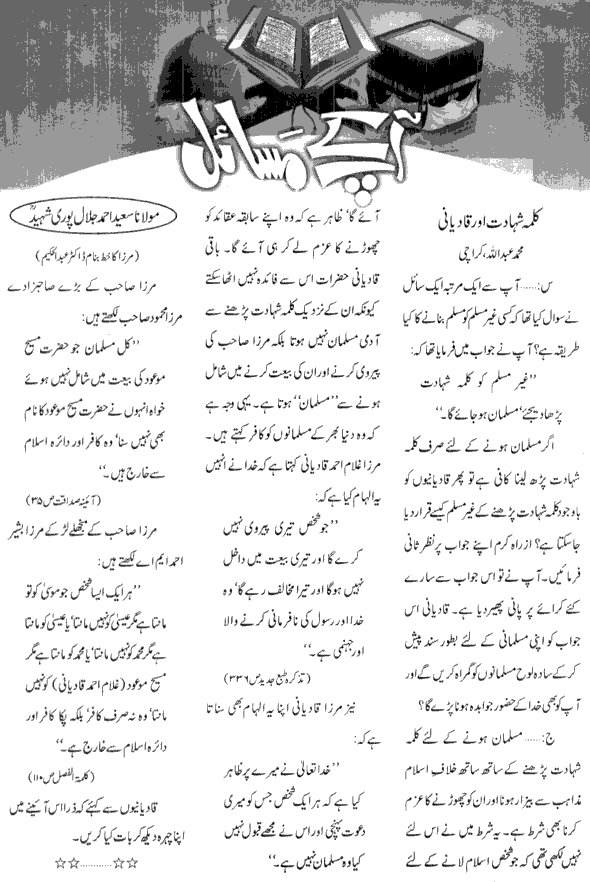 آپ کے مسائل
کلمہ شہادت اور قادیانی
محمد عبداللہ، کراچی
س:...... آپ سے ایک مرتبہ ایک سائل
نے سوال کیا تھا کہ کسی غیر مسلم کو مسلم بنانے کا کیا
طریقہ ہے؟ آپ نے جواب میں فرمایا تھا کہ:
”غیر مسلم کو کلمہ شہادت
پڑھا دیجئے، مسلمان ہو جائے گا۔“
اگر مسلمان ہونے کے لئے صرف کلمہ
شہادت پڑھ لینا کافی ہے تو پھر قادیانیوں کو
باوجود کلمہ شہادت پڑھنے کے غیر مسلم کیسے قرار دیا
جاسکتا ہے؟ ازراہ کرم اپنے جواب پر نظر ثانی
فرمائیں۔ آپ نے تو اس جواب سے سارے
کئے کرائے پر پانی پھیر دیا ہے۔ قادیانی اس
جواب کو اپنی مسلمانی کے لئے بطور سند پیش
کرکے سادہ لوح مسلمانوں کو گمراہ کریں گے اور
آپ کو بھی خدا کے حضور جوابدہ ہونا پڑے گا؟
ج:...... مسلمان ہونے کے لئے کلمہ
شہادت پڑھنے کے ساتھ ساتھ خلاف اسلام
مذاہب سے بیزار ہونا اور ان کو چھوڑنے کا عزم
کرنا بھی شرط ہے۔ یہ شرط میں نے اس لئے
نہیں لکھی تھی کہ جو شخص اسلام لانے کے لئے
آئے گا، ظاہر ہے کہ وہ اپنے سابقہ عقائد کو
چھوڑنے کا عزم لے کر ہی آئے گا۔ باقی
قادیانی حضرات اس سے فائدہ نہیں اٹھا سکتے
کیونکہ ان کے نزدیک کلمہ شہادت پڑھنے سے
آدمی مسلمان نہیں ہوتا بلکہ مرزا صاحب کی
پیروی کرنے اور ان کی بیعت کرنے میں شامل
ہونے سے ”مسلمان“ ہوتا ہے۔ یہی وجہ ہے
کہ وہ دنیا بھر کے مسلمانوں کو کافر کہتے ہیں۔
مرزا غلام احمد قادیانی کہتا ہے کہ خدا نے انہیں
یہ الہام کیا ہے کہ:
”جو شخص تیری پیروی نہیں
کرے گا اور تیری بیعت میں داخل
نہیں ہوگا اور تیرا مخالف رہے گا، وہ
خدا اور رسول کی نافرمانی کرنے والا
اور جہنمی ہے۔“
(تذکرہ طبع جدید ص ۳۳۶)
نیز مرزا قادیانی اپنا یہ الہام بھی سناتا
ہے کہ:
”خدا تعالیٰ نے میرے پر ظاہر
کیا ہے کہ ہر ایک شخص جس کو میری
دعوت پہنچی اور اس نے مجھے قبول نہیں
کیا وہ مسلمان نہیں ہے۔“
مولانا سعید احمد جلال پوری شہیدؒ
(مرزا کا خط بنام ڈاکٹر عبدالحکیم)
مرزا صاحب کے بڑے صاحبزادے
مرزا محمود صاحب لکھتے ہیں:
”کل مسلمان جو حضرت مسیح
موعود کی بیعت میں شامل نہیں ہوئے
خواہ انہوں نے حضرت مسیح موعود کا نام
بھی نہیں سنا، وہ کافر اور دائرہ اسلام
سے خارج ہیں۔“
(آئینہ صداقت ص ۳۵)
مرزا صاحب کے منجھلے لڑکے مرزا بشیر
احمد ایم اے لکھتے ہیں:
”ہر ایک ایسا شخص جو موسیٰ کو تو
مانتا ہے مگر عیسیٰ کو نہیں مانتا، یا عیسیٰ کو مانتا
ہے مگر محمد کو نہیں مانتا، یا محمد کو مانتا ہے مگر
مسیح موعود (غلام احمد قادیانی) کو نہیں
مانتا، وہ نہ صرف کافر، بلکہ پکا کافر اور
دائرہ اسلام سے خارج ہے۔“
(کلمۃ الفصل ص ۱۱۰)
قادیانیوں سے کہئے کہ ذرا اس آئینے میں
اپنا چہرہ دیکھ کر بات کیا کریں۔
☆☆............☆☆